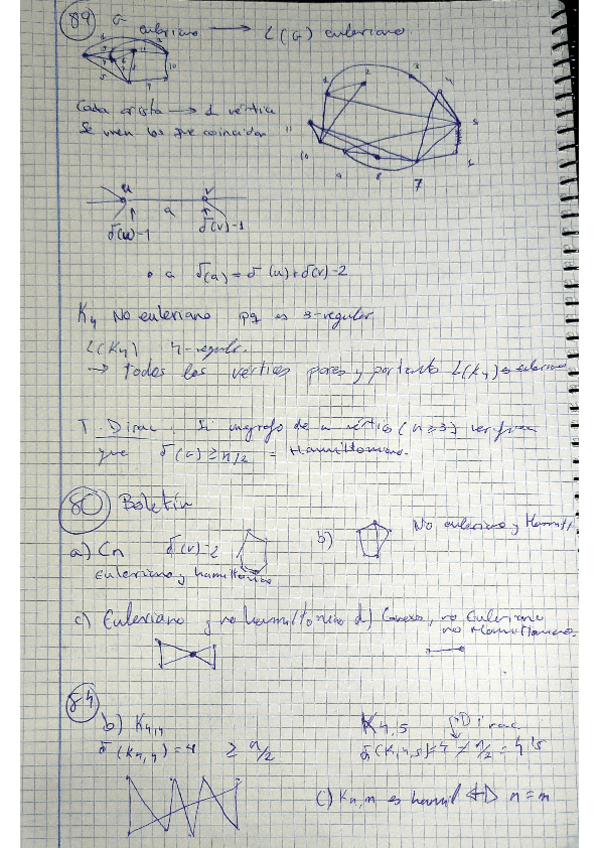 89 G euleriano → L(G) euleriano
Cada arista → 1 vértice
Se unen los que coincidan
1 2 3 4 5 6 7 8 9 10 11
u v
a
δ(u)-1 δ(v)-1
• a δ(a) = δ(u)+δ(v)-2
K4 No euleriano pq es 3-regular
L(K4) 4-regular.
→ Todos los vértices pares y por tanto L(K4) es euleriano
T. Dirac. Si un grafo de n vértices (n≥3) verifica
que δ(G) ≥ n/2 = Hamiltoniano.
80 Boletín
a) Cn δ(v)=2 b) No euleriano y Hamilt.
Euleriano y hamiltónico
c) Euleriano y no hamiltónico d) Conexo, no Euleriano
no Hamiltoniano.
84
b) K4,4 K4,5 Dirac
δ(K4,4)=4 ≥ n/2 δ(K4,5)=4 ≠ n/2 = 4'5
c) Kn,m es hamil ⇔ n=m